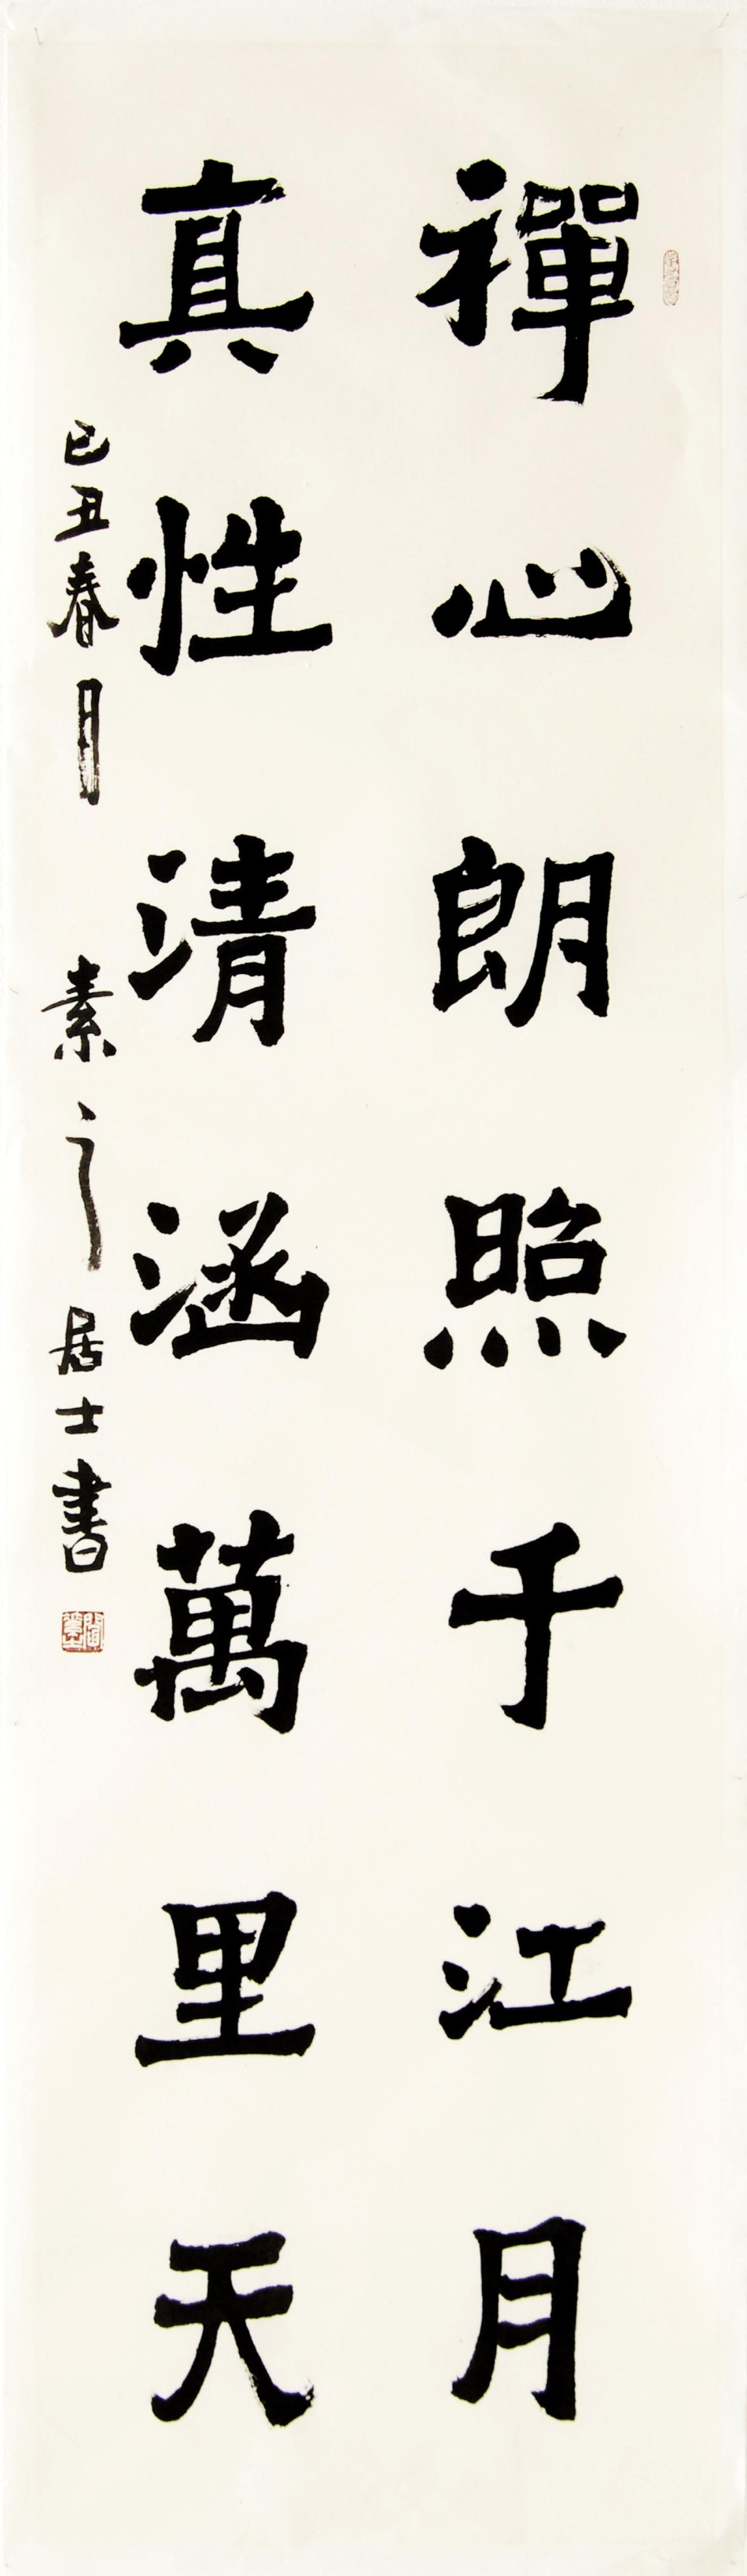 禪心朗照千江月
真性清涵萬里天
己丑春月 素之居士書